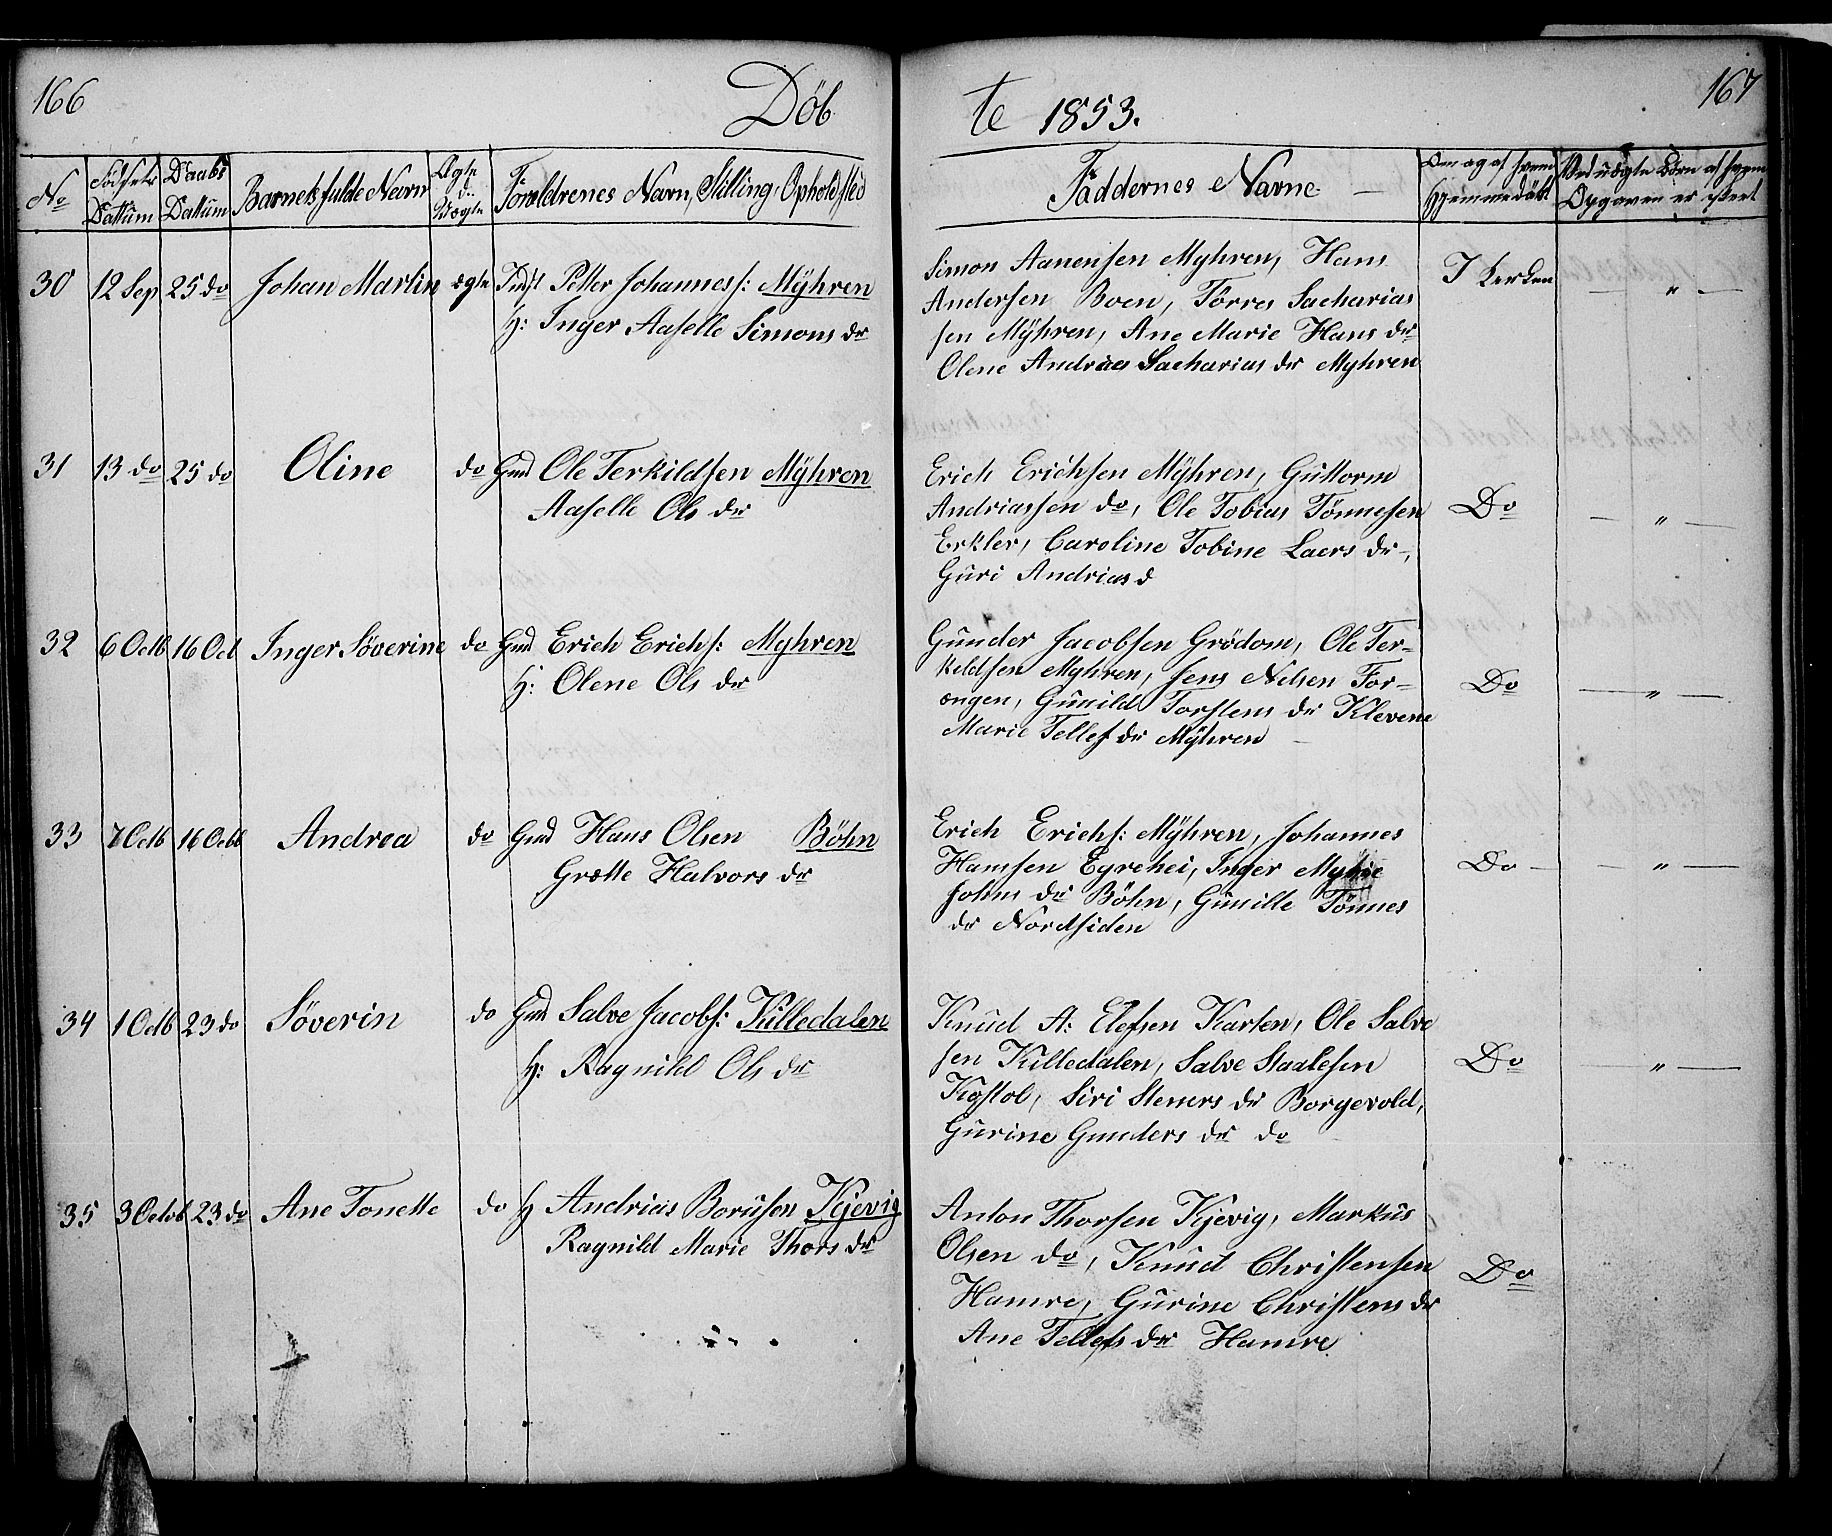 166
Döb
te 1853.
167
No
Födsels Dattüm
Daabs Dattüm
Barnets fulde Navn
Ægte el. Uægte
Forældrenes Navn, Stilling, Opholdssted
Faddernes Navne
Om og af hvem Hjemmedöbt
Ved uægte Börn af hvem Opgaven er skeet
30 12 Sep 25 do Johan Martin ægte Inst Petter Johannes: Mÿhren
H: Inger Aaselle Simons dr
Simon Aanensen Myhren, Hans
Andersen Boen, Törres Sacharias
sen Mÿhren, Ane Marie Hans dr
Olene Andreas Sacharias dr Myhren
I Kerken — " —
31 13 do 25 do Oline do Gmd Ole Terkildsen Mÿhren
Aaselle Ols dr
Erich Erichsen Mÿhren, Güttorm
Andriassen do, Ole Tobias Tönnesen
Erkler, Caroline Tobine Laers dr,
Güri Andrias d
Do — " —
32 6 Octb 16 Oct Inger Söverine do Gmd Erich Erichs: Myhren
H: Olene Ols dr
Günder Jacobsen Grödom, Ole Ter-
keldsen Myhren, Jens Nelsen For-
ængen, Günild Torstens dr Klevene
Marie Tellef dr Mÿhren
Do — " —
33 7 Octb 16 Octb Andrea do Gmd Hans Olsen Böhn
Grætte Halvors dr
Erich Erichs: Mÿhren, Johannes
Hansen Egrehei, Inger
Johns dr Böhn, Günille Tönnes
dr Nordsiden
Do — " —
34 1 Octb 23 do Söverin do Gmd Salve Jacobs: Külledalen
H: Ragnild Ols dr
Knüd A: Elefsen Karten, Ole Salve
sen Külledalen, Salve Staalesen
Kostol, Siri Steners dr Borgevold,
Gürine Gunders dr do
Do — " —
35 3 Octob 23 do Ane Tonette do H Andrias Borüsen Kjevig
Ragnild Marie Thors dr
Anton Thorsen Kjevig, Markus
Olsen do, Knüd Christensen
Hamre, Gürine Christens dr
Ane Tellefs dr Hamre
Do